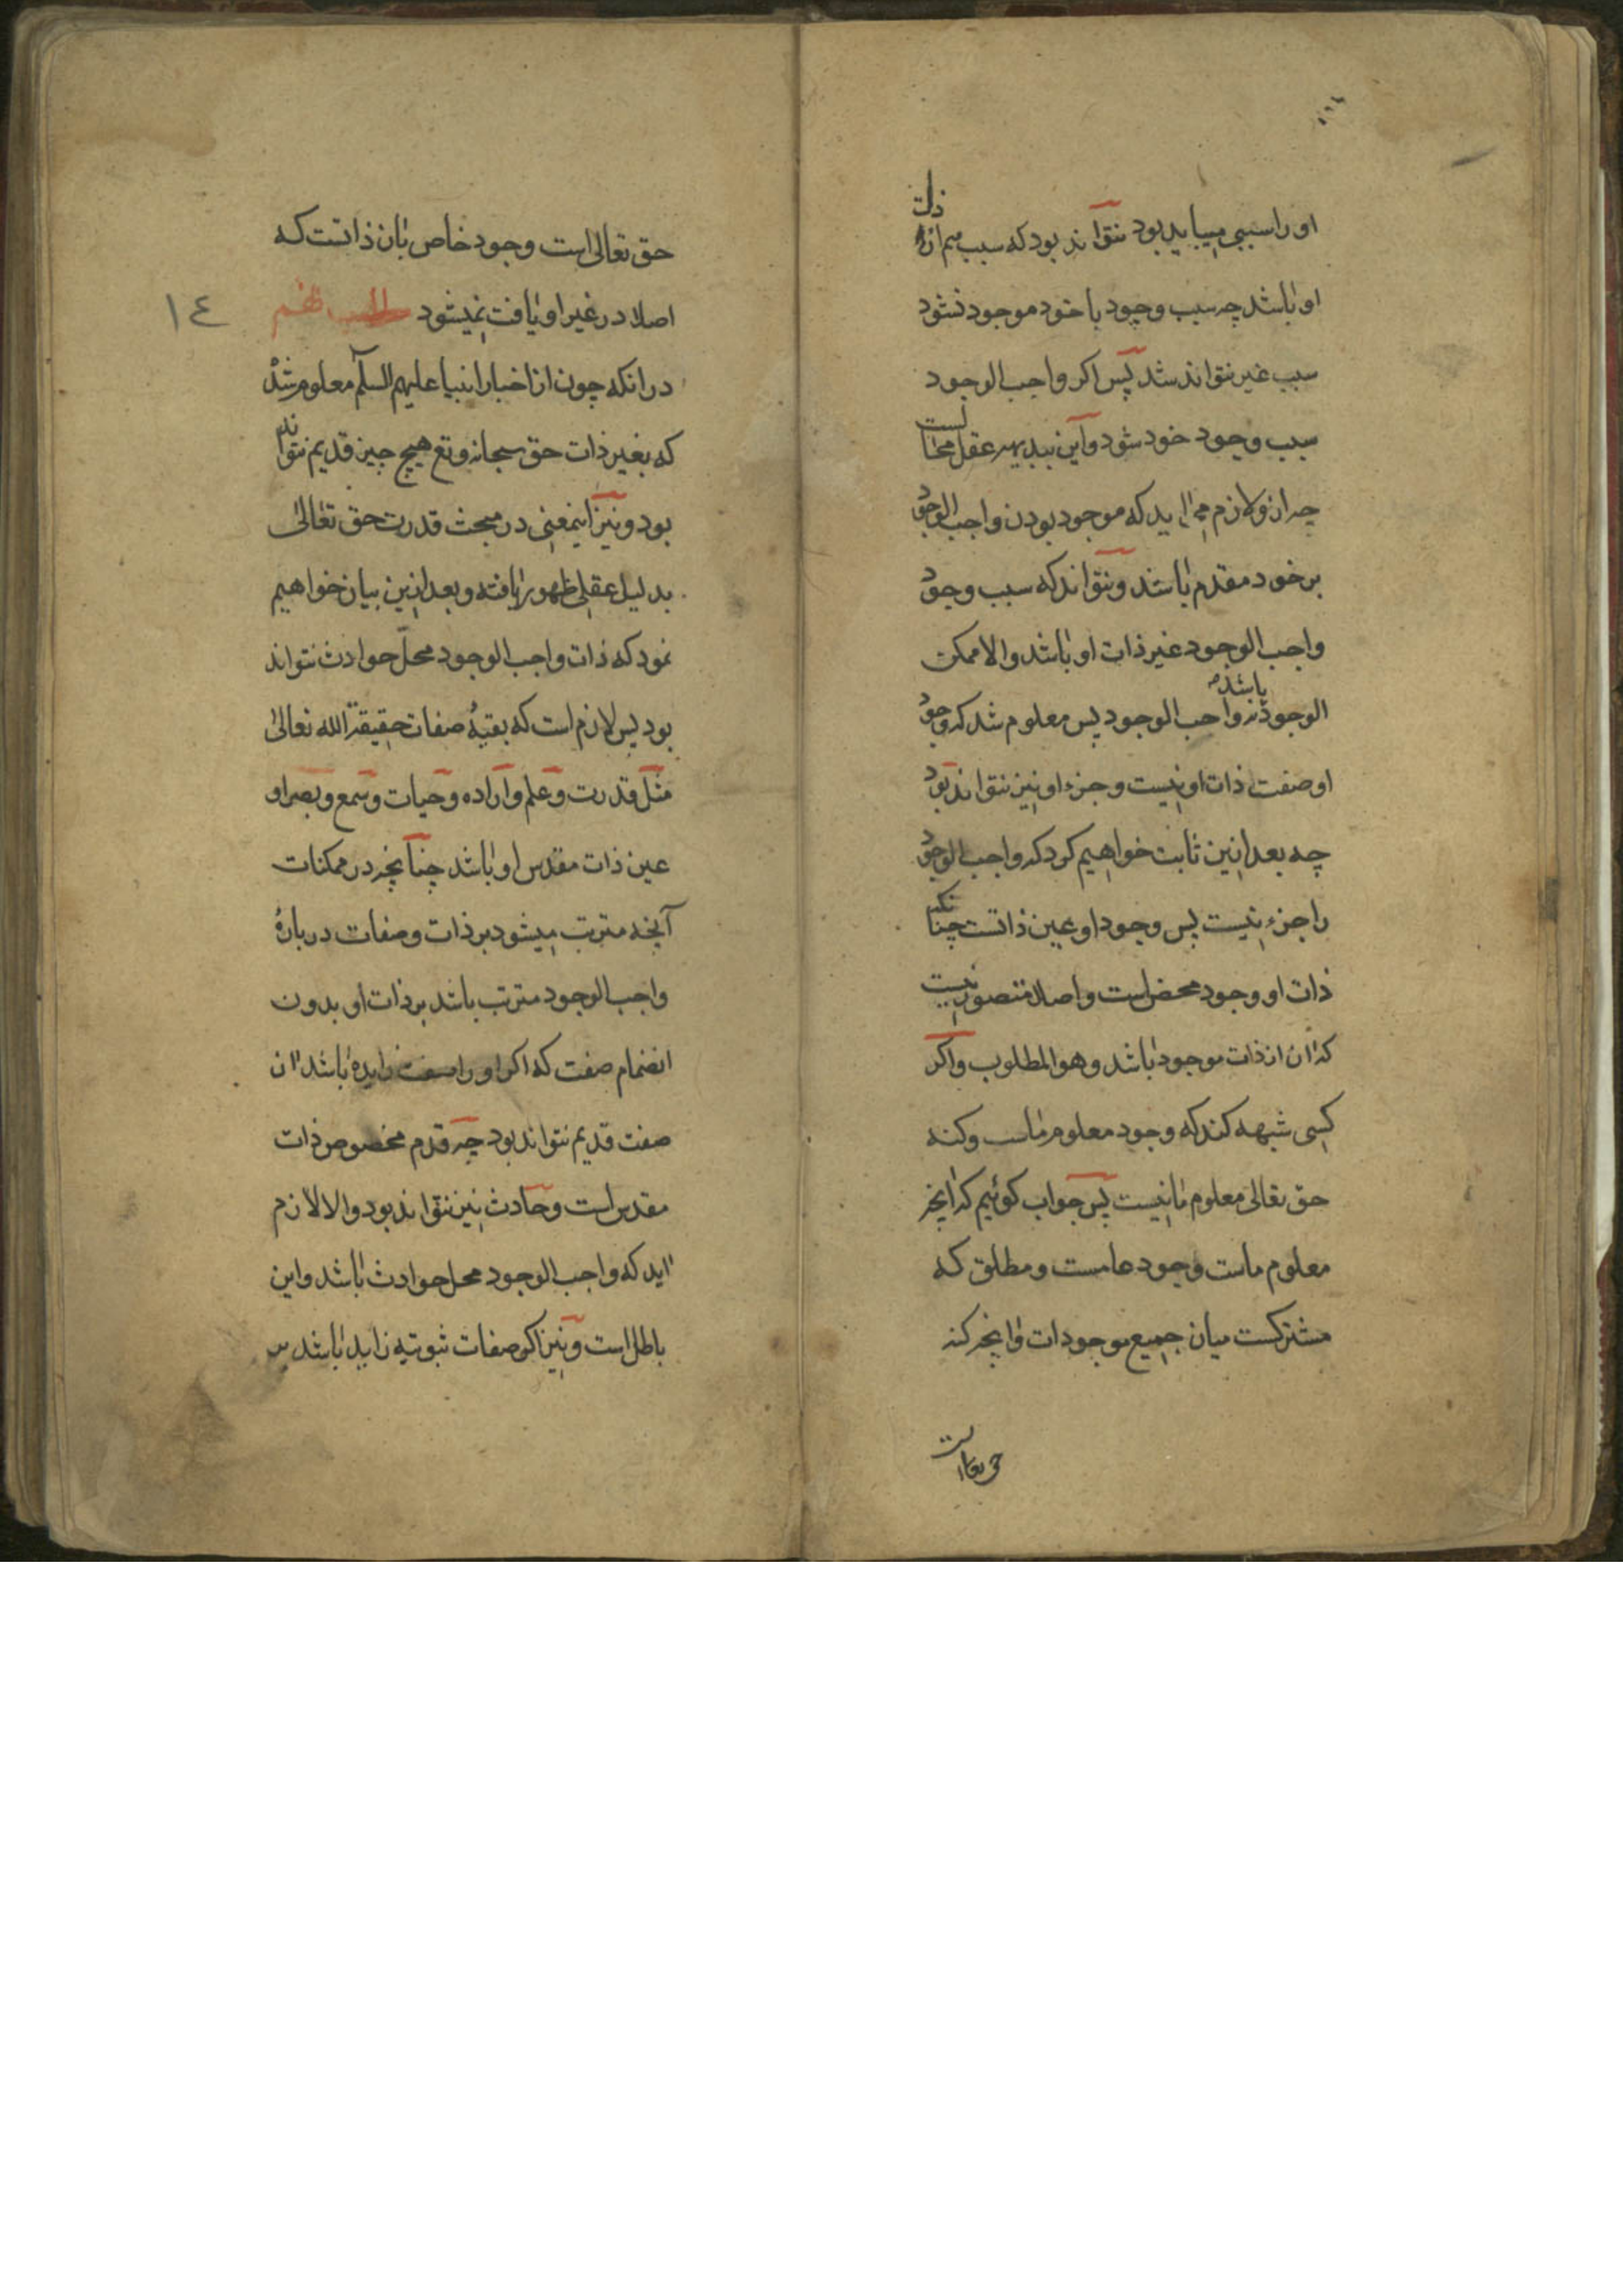 او را سببی میباید بود نتواند بود که سبب هم ازان ذات
او باشد چه سبب وجود با خود موجود نشود
سبب غیر نتواند شد پس اکر واجب الوجود
سبب وجود خود شود و این ببدیهه عقل محالست
چه ازو لازم می اید که موجود بودن واجب الوجود
بر خود مقدم باشد و نتواند که سبب وجود
واجب الوجود غیر ذات او باشد والا ممکن
الوجود باشد نه واجب الوجود پس معلوم شد که وجود
او صفت ذات او نیست و جزء او نیز نتواند بود
چه بعد ازین ثابت خواهیم کرد که واجب الوجود
را جزء نیست پس وجود او عین ذاتست چنانکه
ذات او وجود محض است و اصلا متصور نیست
که ان از ذات موجود باشد و هو المطلوب و اکر
کسی شبهه کند که وجود معلوم ماست و کنه
حق تعالی معلوم ما نیست پس جواب کوئیم که انچه
معلوم ماست وجود عامست و مطلق که
مشترکست میان جمیع موجودات و انچه کنه
حق تعالی است
حق تعالی است وجود خاص بان ذاتست که
اصلا در غیر او یافت نمیشود مطلب نهم
١٤
در انکه چون از اخبار انبیا علیهم السلم معلوم شد
که بغیر ذات حق سبحانه و تع هیچ چیز قدیم نتواند
بود و نیز اینمعنی در مبحث قدرت حق تعالی
بدلیل عقلی ظهور یافته و بعد ازین بیان خواهیم
نمود که ذات واجب الوجود محل حوادث نتواند
بود پس لازم است که بقیهٔ صفات حقیقة الله تعالی
مثل قدرت و علم و اراده و حیات و سمع و بصر او
عین ذات مقدس او باشد چنانچه در ممکنات
آنچه مترتب میشود بر ذات و صفات در بارهٔ
واجب الوجود مترتب باشد بر ذات او بدون
انضمام صفت که اکر او را صفت زایده باشد ان
صفت قدیم نتواند بود چه قدم مخصوص ذات
مقدس است و حادث نیز نتواند بود والا لازم
اید که واجب الوجود محل حوادث باشد و این
باطل است و نیز اکر صفات ثبوتیه زاید باشد پس